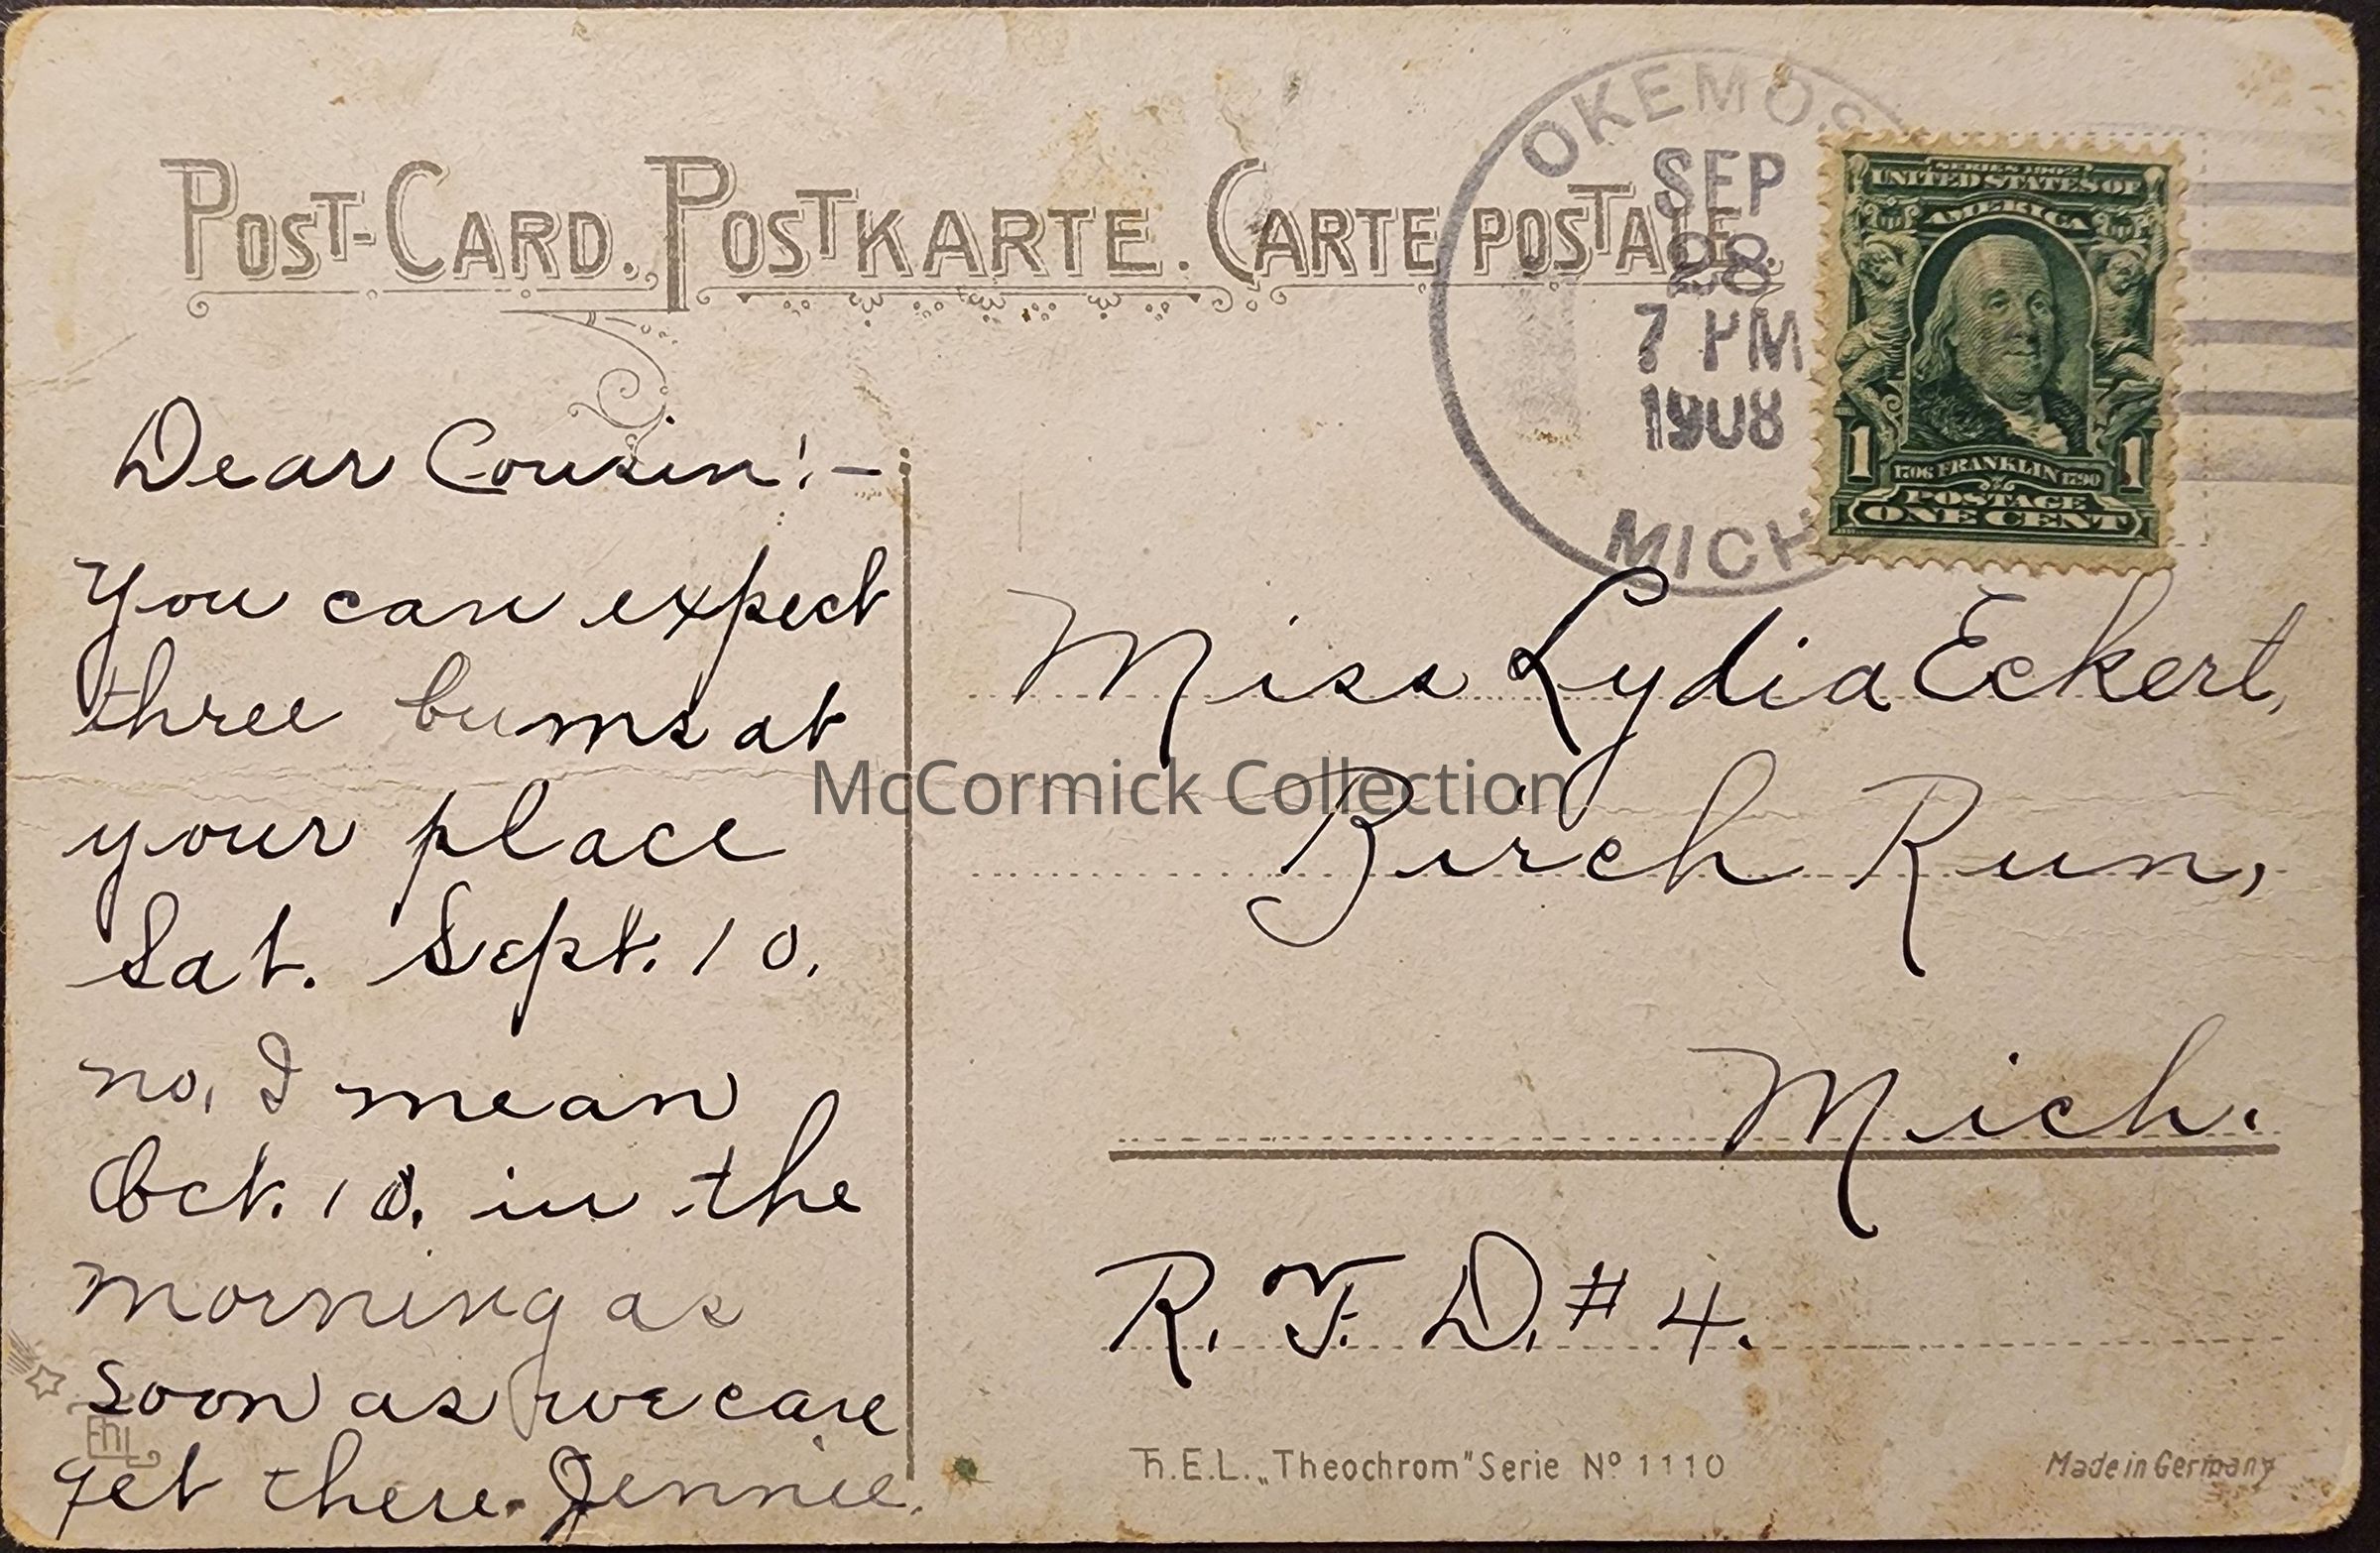 POST-CARD. POSTKARTE. CARTE POSTALE.
OKEMOS
SEP
28
7 PM
1908
MICH
SERIES 1902
UNITED STATES OF
AMERICA
1 1
1706 FRANKLIN 1790
POSTAGE
ONE CENT
Dear Cousin!—
You can expect
three bums at
your place
Sat. Sept. 10.
no, I mean
Oct. 10. in the
morning as
soon as we can
get there. Jennie.
Miss Lydia Eckert,
Birch Run,
Mich.
R. F. D. # 4.
McCormick Collection
Th.E.L. „Theochrom" Serie Nº 1110
Made in Germany